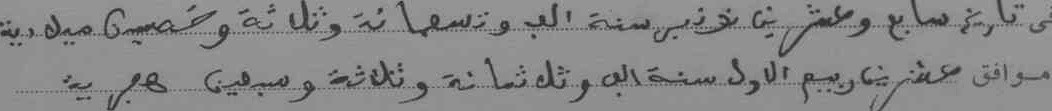 في تاريخ سابع وعشرين نونبر سنة الف وتسعمائة وثلاثة وخمسين ميلادية
موافق عشرين ربيع الاول سنة الف وثلاثمائة وثلاثة وسبعين هجرية